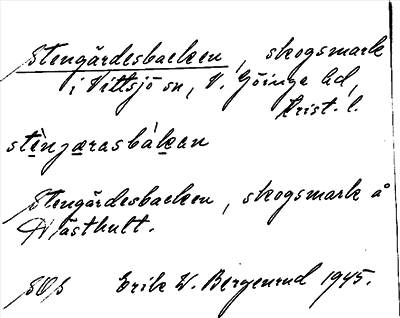 Stengärdesbacken, skogsmark
i Vittsjö sn, V. Göinge hd,
Krist. l.
stènjærasbàkan
Stengärdesbacken, skogsmark å
Hästhult.
Erik W. Bergenrud 1945.